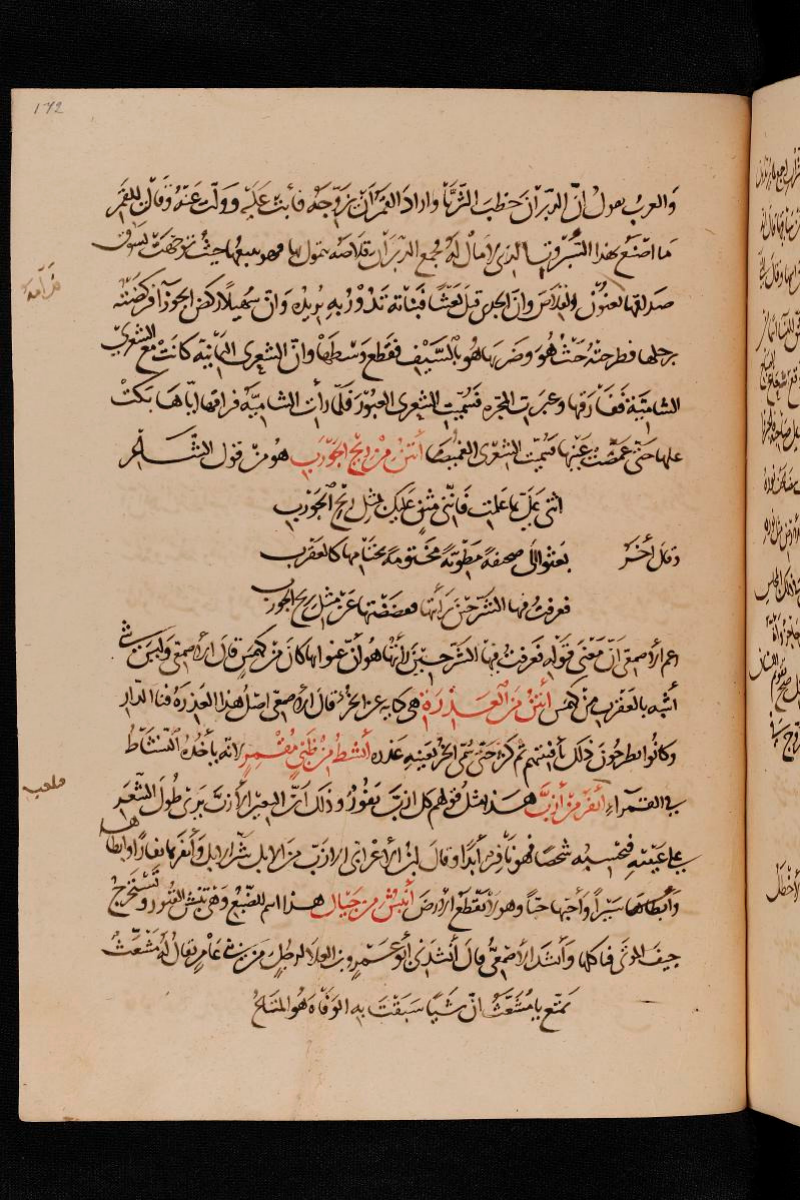 ١٧٢
والعرب تقول انّ الدبران خطب الثريا واراد القمر ان يزوجه فأبت عليه وولت عنه وقالت للقمر
ما اصنع بهذا السبروت الذي لا مال له فجمع الدبران قلاصه يتمول بها فهو يتبعها حيث توجهت يسوق
صداقها يعنون القلاص وانّ الجدي قتل نعشا فبناته تدور به تريده وانّ سهيلا ركض الجوزا فركضته
برجلها فطرحته حيث هو وضربها هو بالسيف فقطع وسطها وانّ الشعرى اليمانية كانت مع الشعرى
الشامية ففارقتها وعبرت المجره فسميت الشعرى العبور فلما رأت الشامية فراقها اياها بكت
عليها حتى غمصت عينها فسميت الشعرى الغميصا أنتن من ريح الجورب هو من قول الشاعر
اثني علي بما علمت فانني مثن عليك بمثل ريح الجورب
وقال أخر بعثوا الي صحيفة مطوية مختومة بختامها كالعقرب
فعرفت فيها الشر حين رأيتها ففضضتها عن مثل ريح الجورب
زعم الاصمعي انّ معنى قوله فعرفت فيها الشر حين رأيتها هو أنّ عنوانها كان من كهمس قال الاصمعي وليس شي
أشبه بالعقرب من كهمس أنتن من العذرة هي كناية عن الخرء قال الاصمعي اصل هذا العذرة فنا الدار
وكانوا يطرحون ذلك بأفنيتهم ثم كثر حتى سمي الخرء بعينه عذره أنشط من ظبي مقمر لانه يأخذه النشاط
في القمراء أنفر من أزب هذا مثل قولهم كل ازب نفور وذلك انّ البعير الأزب يرى طول الشعر
على عينيه فيحسبه شخصا فهو نافر أبدا وقال ابن الاعرابي الازب من الابل شر الابل وأنفرها نفارا وابطاها
وأبطاها سيرا وأخبها خبا وهو لا يقطع الارض أنبش من جيال هذا اسم للضبع وهي تنبش القبور وتستخرج
جيف الموتى فتاكلها وأنشد الاصمعي قال أنشدني أبو عمرو بن العلا لرجل من بني عامر يقال له مشعث
تمتع يا مشعث انّ شيا سبقت به الوفاه هو المتاع
ملعب